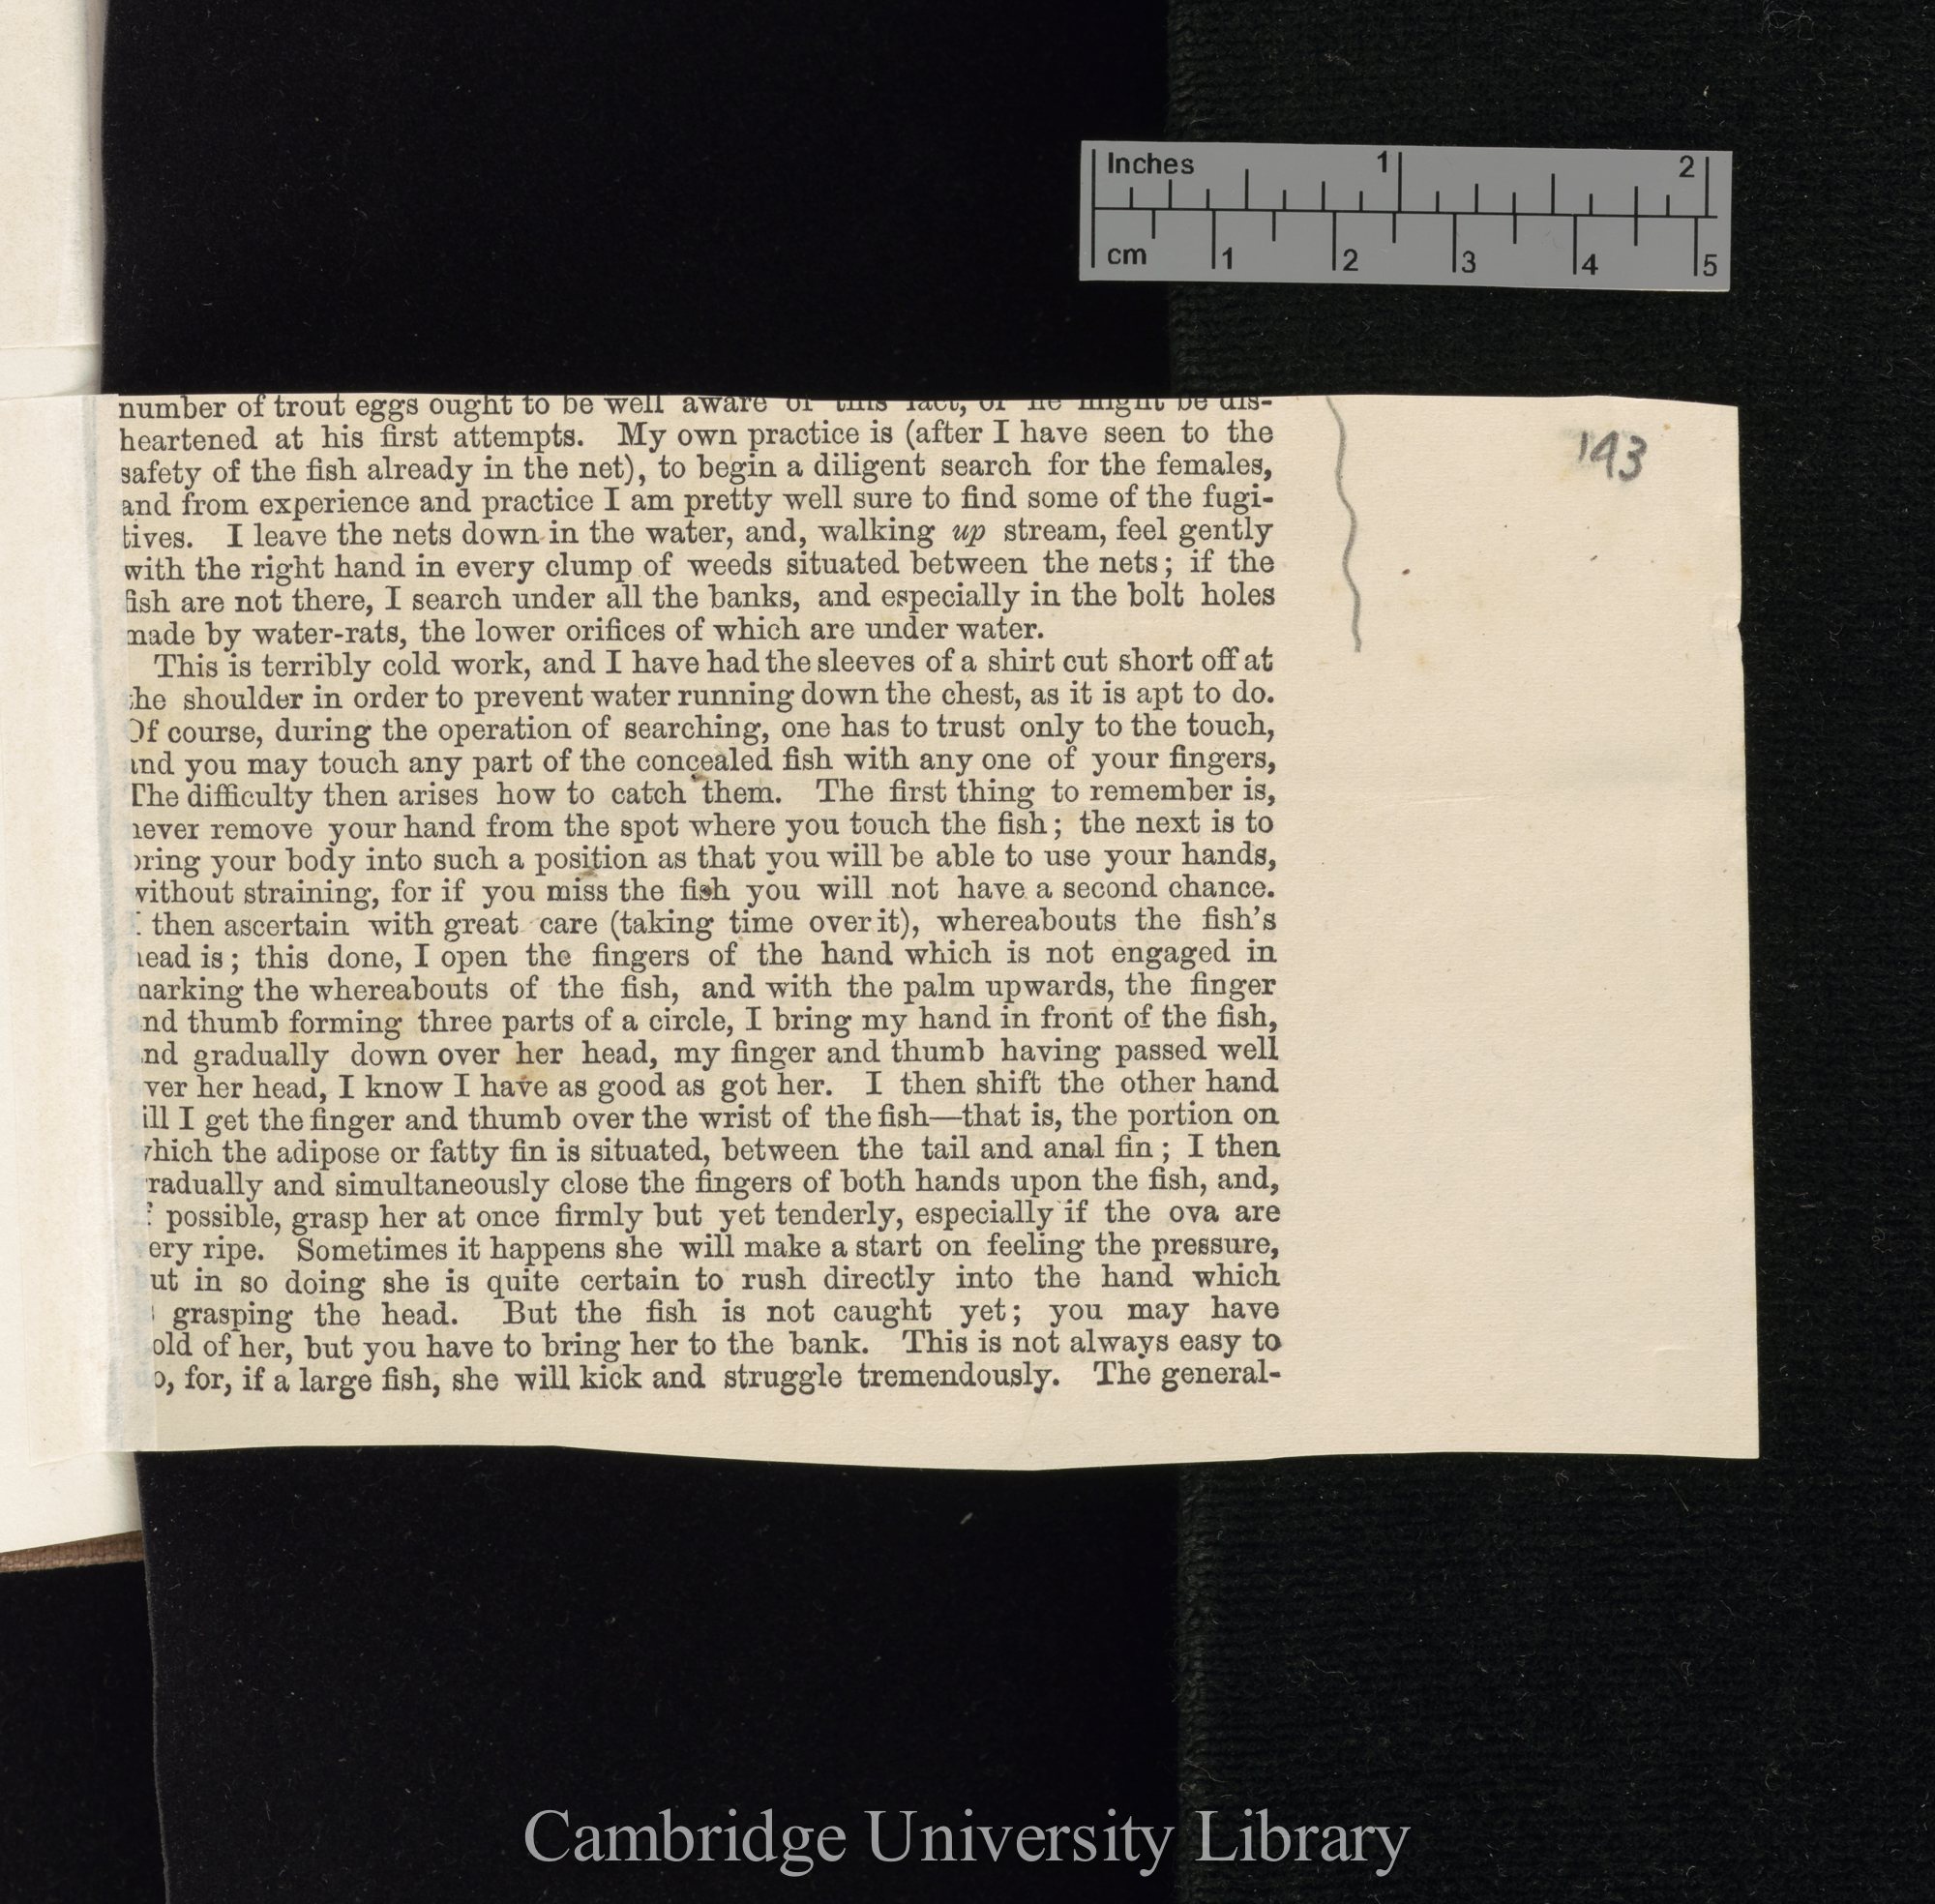 Inches 1 2
cm 1 2 3 4 5
143
number of trout eggs ought to be well aware of this fact, or he might be dis-
heartened at his first attempts. My own practice is (after I have seen to the
safety of the fish already in the net), to begin a diligent search for the females,
and from experience and practice I am pretty well sure to find some of the fugi-
tives. I leave the nets down in the water, and, walking up stream, feel gently
with the right hand in every clump of weeds situated between the nets; if the
fish are not there, I search under all the banks, and especially in the bolt holes
made by water-rats, the lower orifices of which are under water.
This is terribly cold work, and I have had the sleeves of a shirt cut short off at
the shoulder in order to prevent water running down the chest, as it is apt to do.
Of course, during the operation of searching, one has to trust only to the touch,
and you may touch any part of the concealed fish with any one of your fingers,
The difficulty then arises how to catch them. The first thing to remember is,
never remove your hand from the spot where you touch the fish; the next is to
bring your body into such a position as that you will be able to use your hands,
without straining, for if you miss the fish you will not have a second chance.
I then ascertain with great care (taking time over it), whereabouts the fish's
head is; this done, I open the fingers of the hand which is not engaged in
marking the whereabouts of the fish, and with the palm upwards, the finger
nd thumb forming three parts of a circle, I bring my hand in front of the fish,
nd gradually down over her head, my finger and thumb having passed well
ver her head, I know I have as good as got her. I then shift the other hand
ill I get the finger and thumb over the wrist of the fish—that is, the portion on
which the adipose or fatty fin is situated, between the tail and anal fin; I then
radually and simultaneously close the fingers of both hands upon the fish, and,
f possible, grasp her at once firmly but yet tenderly, especially if the ova are
ery ripe. Sometimes it happens she will make a start on feeling the pressure,
ut in so doing she is quite certain to rush directly into the hand which
grasping the head. But the fish is not caught yet; you may have
old of her, but you have to bring her to the bank. This is not always easy to
o, for, if a large fish, she will kick and struggle tremendously. The general-
Cambridge University Library